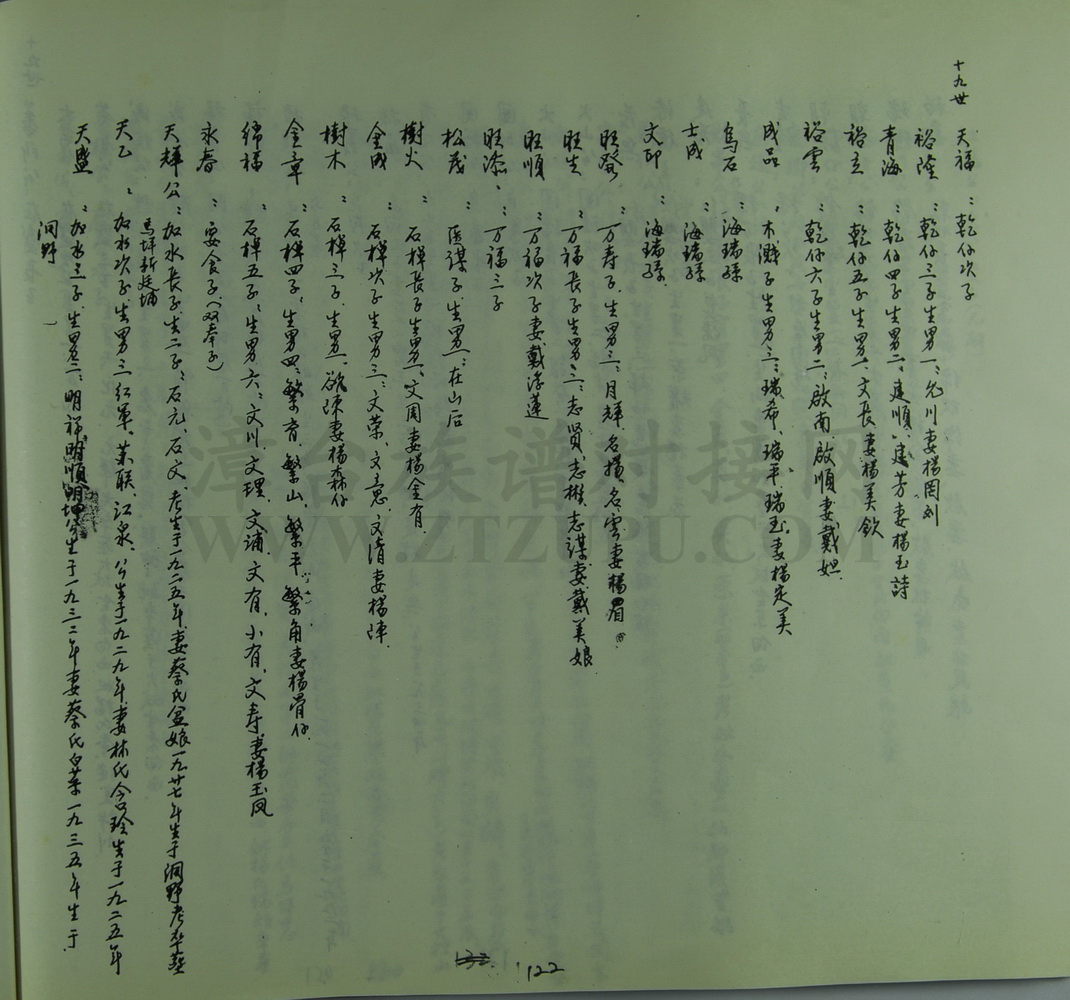 十九世
天福：乾仔次子
裕陞：乾仔三子生男一：允川妻楊罔
青海：乾仔四子生男二：建順、建芳妻楊玉詩
裕立：乾仔五子生男一、文長妻楊美欽
裕雲：乾仔六子生男二、啟南、啟順妻戴妲
成品：木濺子生男三：瑞希、瑞平、瑞玉、妻楊定美
烏石：海瑞孫
士成：海瑞孫
文印：海瑞孫
旺發：万寿子、生男三：月輝、名揚、名雲妻楊眉
旺生：万福長子生男三：志賢、志樹、志謀妻戴美娘
旺順：万福次子妻戴浮蓮
旺添：万福三子
松茂：医謀子、生男一：在山后
樹火：石棹長子生男一、文周妻楊金有
金成：石棹次子生男三：文荣、文意、文清妻楊陣
樹木：石棹三子、生男一、欲陣妻楊森仔
金章：石棹四子、生男四：繁育、繁山、繁平、繁角妻楊骨仔
綿福：石棹五子、生男六：文川、文理、文浦、文有、小有、文寿妻楊玉凤
永春：要食子、（双奉子）
天輝公：加水長子、生二子：石元、石文、考生于一九二五年、妻蔡氏盆娘一九廿七年生于洞野考卒葬
馬坪新廷埔
天乙：加水次子、生男三红軍、苿联、江泉、公生于一九二九年妻林氏含珍生于一九二五年
天盛：加水三子、生男三：明福、明順、明坤公生于一九三二年妻蔡氏白菜一九三五年生于
洞野
122
漳台族谱对接网
WWW.ZTZUPU.COM